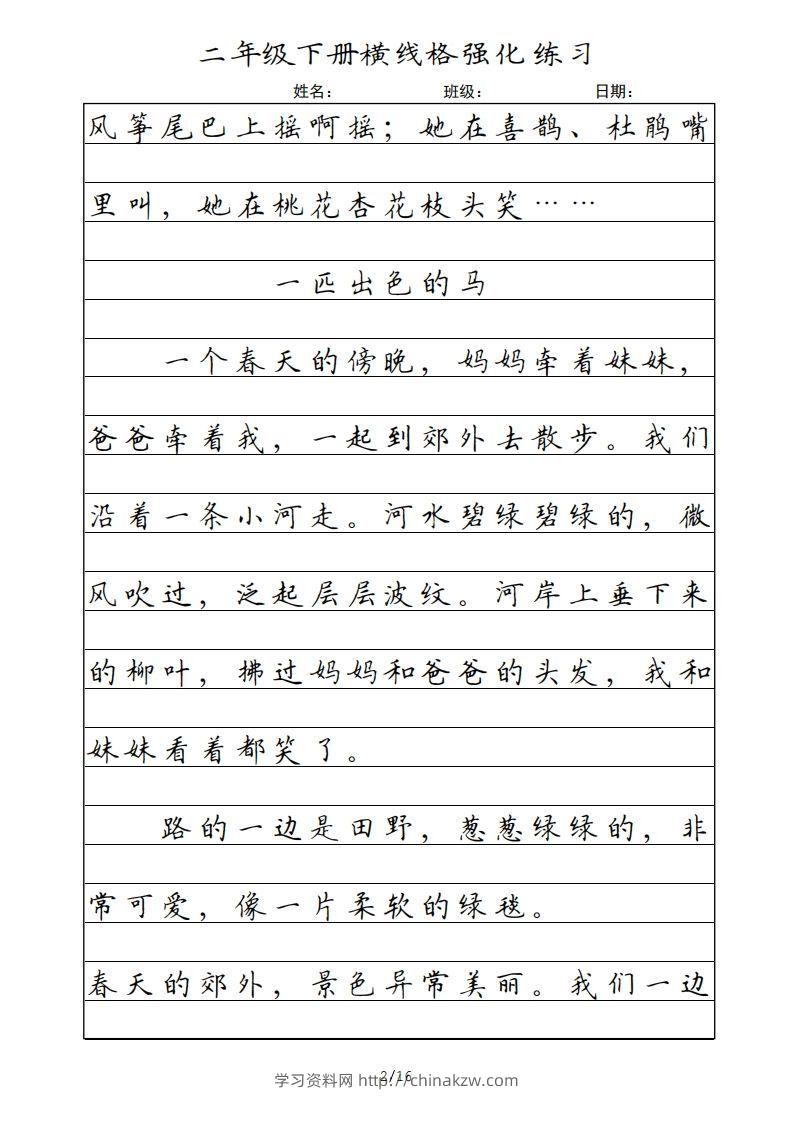 二年级下册横线格强化练习
姓名： 班级： 日期：
风筝尾巴上摇啊摇；她在喜鹊、杜鹃嘴
里叫，她在桃花杏花枝头笑……
一匹出色的马
一个春天的傍晚，妈妈牵着妹妹，
爸爸牵着我，一起到郊外去散步。我们
沿着一条小河走。河水碧绿碧绿的，微
风吹过，泛起层层波纹。河岸上垂下来
的柳叶，拂过妈妈和爸爸的头发，我和
妹妹看着都笑了。
路的一边是田野，葱葱绿绿的，非
常可爱，像一片柔软的绿毯。
春天的郊外，景色异常美丽。我们一边
2/16
学习资料网 http://chinakzw.com